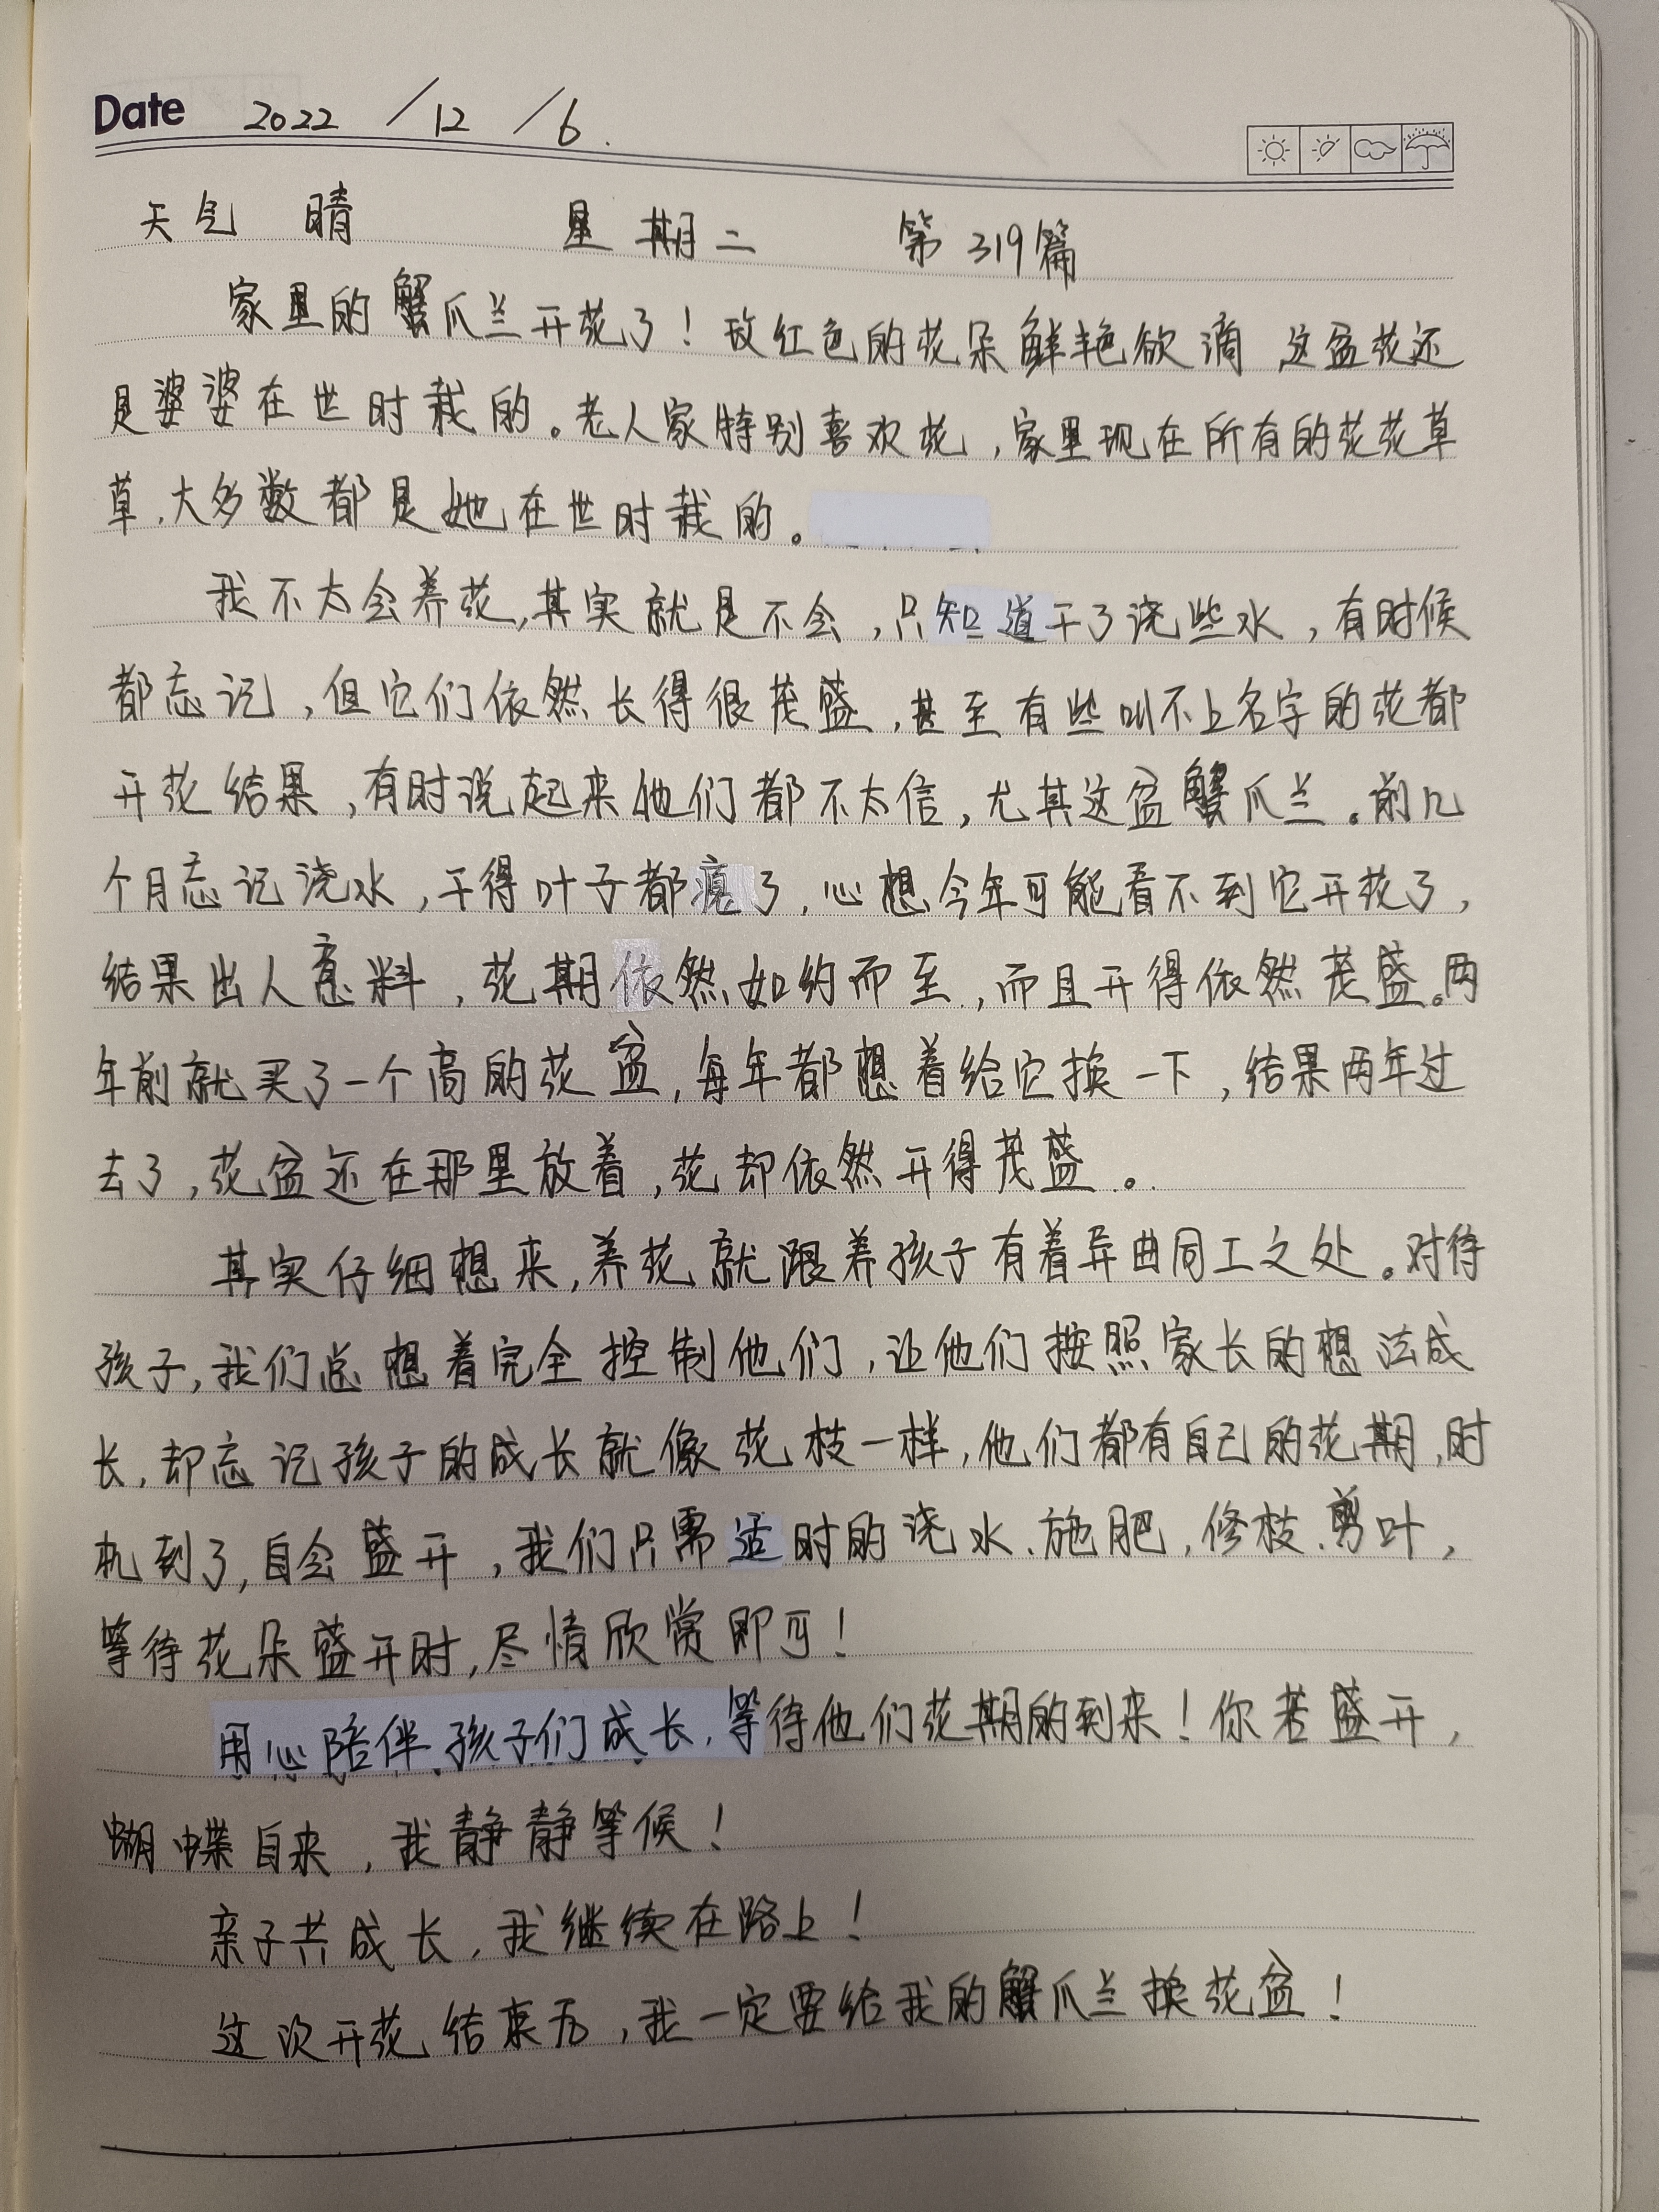 Date 2022 / 12 / 6 .
天气 晴 星期二 第319篇
家里的蟹爪兰开花了！玫红色的花朵鲜艳欲滴 这盆花还
是婆婆在世时栽的。老人家特别喜欢花，家里现在所有的花花草
草，大多数都是她在世时栽的。
我不太会养花，其实就是不会，只知道干了浇些水，有时候
都忘记，但它们依然长得很茂盛，甚至有些叫不上名字的花都
开花结果，有时说起来他们都不太信，尤其这盆蟹爪兰。前几
个月忘记浇水，干得叶子都瘪了，心想今年可能看不到它开花了，
结果出人意料，花期依然如约而至，而且开得依然茂盛。两
年前就买了一个高的花盆，每年都想着给它换一下，结果两年过
去了，花盆还在那里放着，花却依然开得茂盛。
其实仔细想来，养花就跟养孩子有着异曲同工之处。对待
孩子，我们总想着完全控制他们，让他们按照家长的想法成
长，却忘记孩子的成长就像花枝一样，他们都有自己的花期，时
机到了，自会盛开，我们只需适时的浇水、施肥，修枝、剪叶，
等待花朵盛开时，尽情欣赏即可！
用心陪伴孩子们成长，等待他们花期的到来！你若盛开，
蝴蝶自来，我静静等候！
亲子共成长，我继续在路上！
这次开花结束后，我一定要给我的蟹爪兰换花盆！